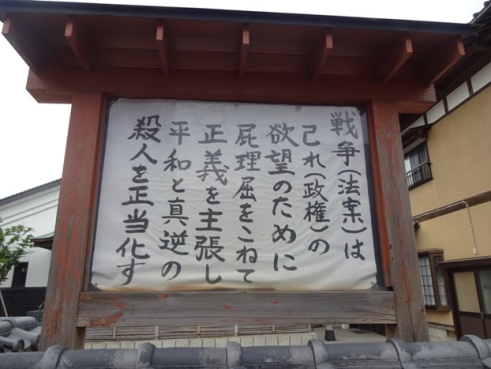 戦争(法案)は
己れ(政権)の
欲望のために
屁理屈をこねて
正義を主張し
平和と真逆の
殺人を正当化す